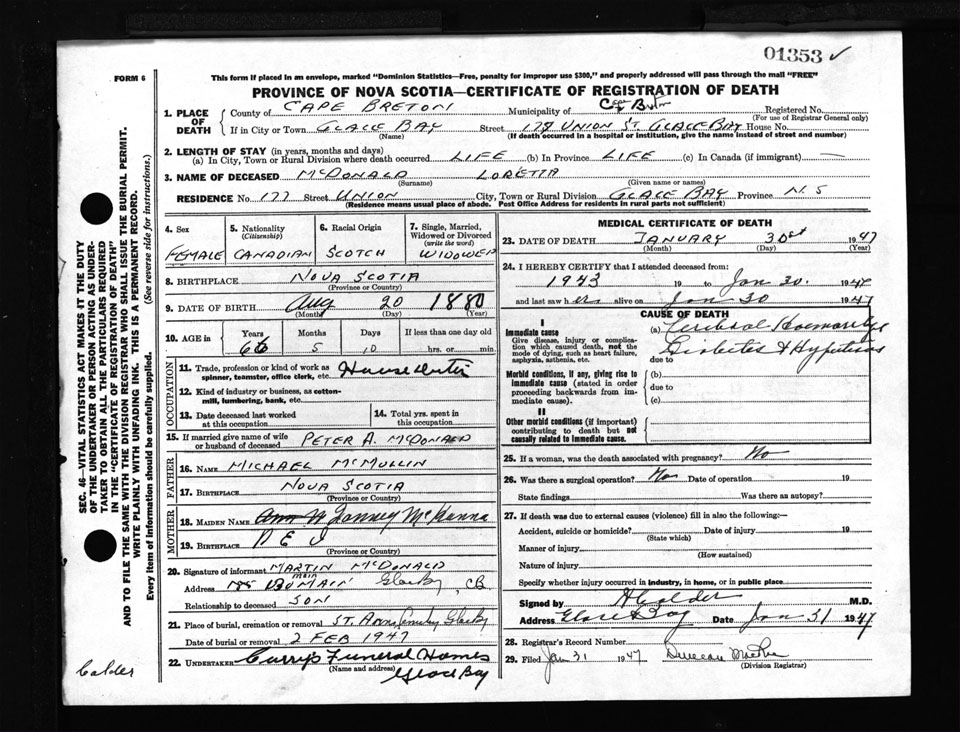 01353 ✓
FORM 6
This form if placed in an envelope, marked "Dominion Statistics—Free, penalty for improper use $300," and properly addressed will pass through the mail "FREE"
PROVINCE OF NOVA SCOTIA—CERTIFICATE OF REGISTRATION OF DEATH
1. PLACE OF DEATH
County of CAPE BRETON Municipality of Cape Breton Registered No.
(For use of Registrar General only)
If in City or Town GLACE BAY Street 177 UNION ST. GLACE BAY House No.
(If death occurred in a hospital or institution, give the name instead of street and number)
2. LENGTH OF STAY (in years, months and days)
(a) In City, Town or Rural Division where death occurred LIFE (b) In Province LIFE (c) In Canada (if immigrant) —
3. NAME OF DECEASED McDONALD LORETTA
(Surname) (Given name or names)
RESIDENCE No. 177 Street UNION City, Town or Rural Division GLACE BAY Province N.S
(Residence means usual place of abode. Post Office Address for residents in rural parts not sufficient)
4. Sex FEMALE
5. Nationality (Citizenship) CANADIAN
6. Racial Origin SCOTCH
7. Single, Married, Widowed or Divorced (write the word) WIDOWED
8. BIRTHPLACE NOVA SCOTIA
(Province or Country)
9. DATE OF BIRTH Aug 20 1880
(Month) (Day) (Year)
10. AGE in Years 66 Months 5 Days 10 If less than one day old hrs. or min.
OCCUPATION
11. Trade, profession or kind of work as spinner, teamster, office clerk, etc.
12. Kind of industry or business, as cotton-mill, lumbering, bank, etc.
13. Date deceased last worked at this occupation
14. Total yrs. spent in this occupation
15. If married give name of wife or husband of deceased PETER A. McDONALD
FATHER
16. NAME MICHAEL McMULLIN
17. BIRTHPLACE NOVA SCOTIA
(Province or Country)
MOTHER
18. MAIDEN NAME McKanna
19. BIRTHPLACE P E I
(Province or Country)
20. Signature of informant MARTIN McDONALD
Address MAIN Glace Bay, CB
Relationship to deceased SON
21. Place of burial, cremation or removal ST. ANNS Cemetery Glace Bay
Date of burial or removal 2 FEB 1947
22. UNDERTAKER Curry's Funeral Homes
(Name and address) Glace Bay
MEDICAL CERTIFICATE OF DEATH
23. DATE OF DEATH JANUARY 30 1947
(Month) (Day) (Year)
24. I HEREBY CERTIFY that I attended deceased from:
1943 19 to Jan 30. 1947
and last saw her alive on Jan 30 1947
CAUSE OF DEATH
I
Immediate cause
Give disease, injury or complication which caused death, not the mode of dying, such as heart failure, asphyxia, asthenia, etc.
(a) Cerebral Haemorrhage
due to Diabetes &
Morbid conditions, if any, giving rise to immediate cause (stated in order proceeding backwards from immediate cause).
(b)
due to
(c)
II
Other morbid conditions (if important) contributing to death but not causally related to immediate cause.
25. If a woman, was the death associated with pregnancy? No
26. Was there a surgical operation? No Date of operation 19
State findings Was there an autopsy?
27. If death was due to external causes (violence) fill in also the following:—
Accident, suicide or homicide? Date of injury 19
(State which)
Manner of injury
(How sustained)
Nature of injury
Specify whether injury occurred in industry, in home, or in public place
Signed by Calder M.D.
Address Glace Bay Date Jan 31 1947
28. Registrar's Record Number
29. Filed Jan 31 1947 Duncan
(Division Registrar)
SEC. 46—VITAL STATISTICS ACT MAKES IT THE DUTY
OF THE UNDERTAKER OR PERSON ACTING AS UNDER-
TAKER TO OBTAIN ALL THE PARTICULARS REQUIRED
IN THE "CERTIFICATE OF REGISTRATION OF DEATH"
AND TO FILE THE SAME WITH THE DIVISION REGISTRAR WHO SHALL ISSUE THE BURIAL PERMIT.
WRITE PLAINLY WITH UNFADING INK. THIS IS A PERMANENT RECORD.
Every item of information should be carefully supplied. (See reverse side for instructions.)
Calder